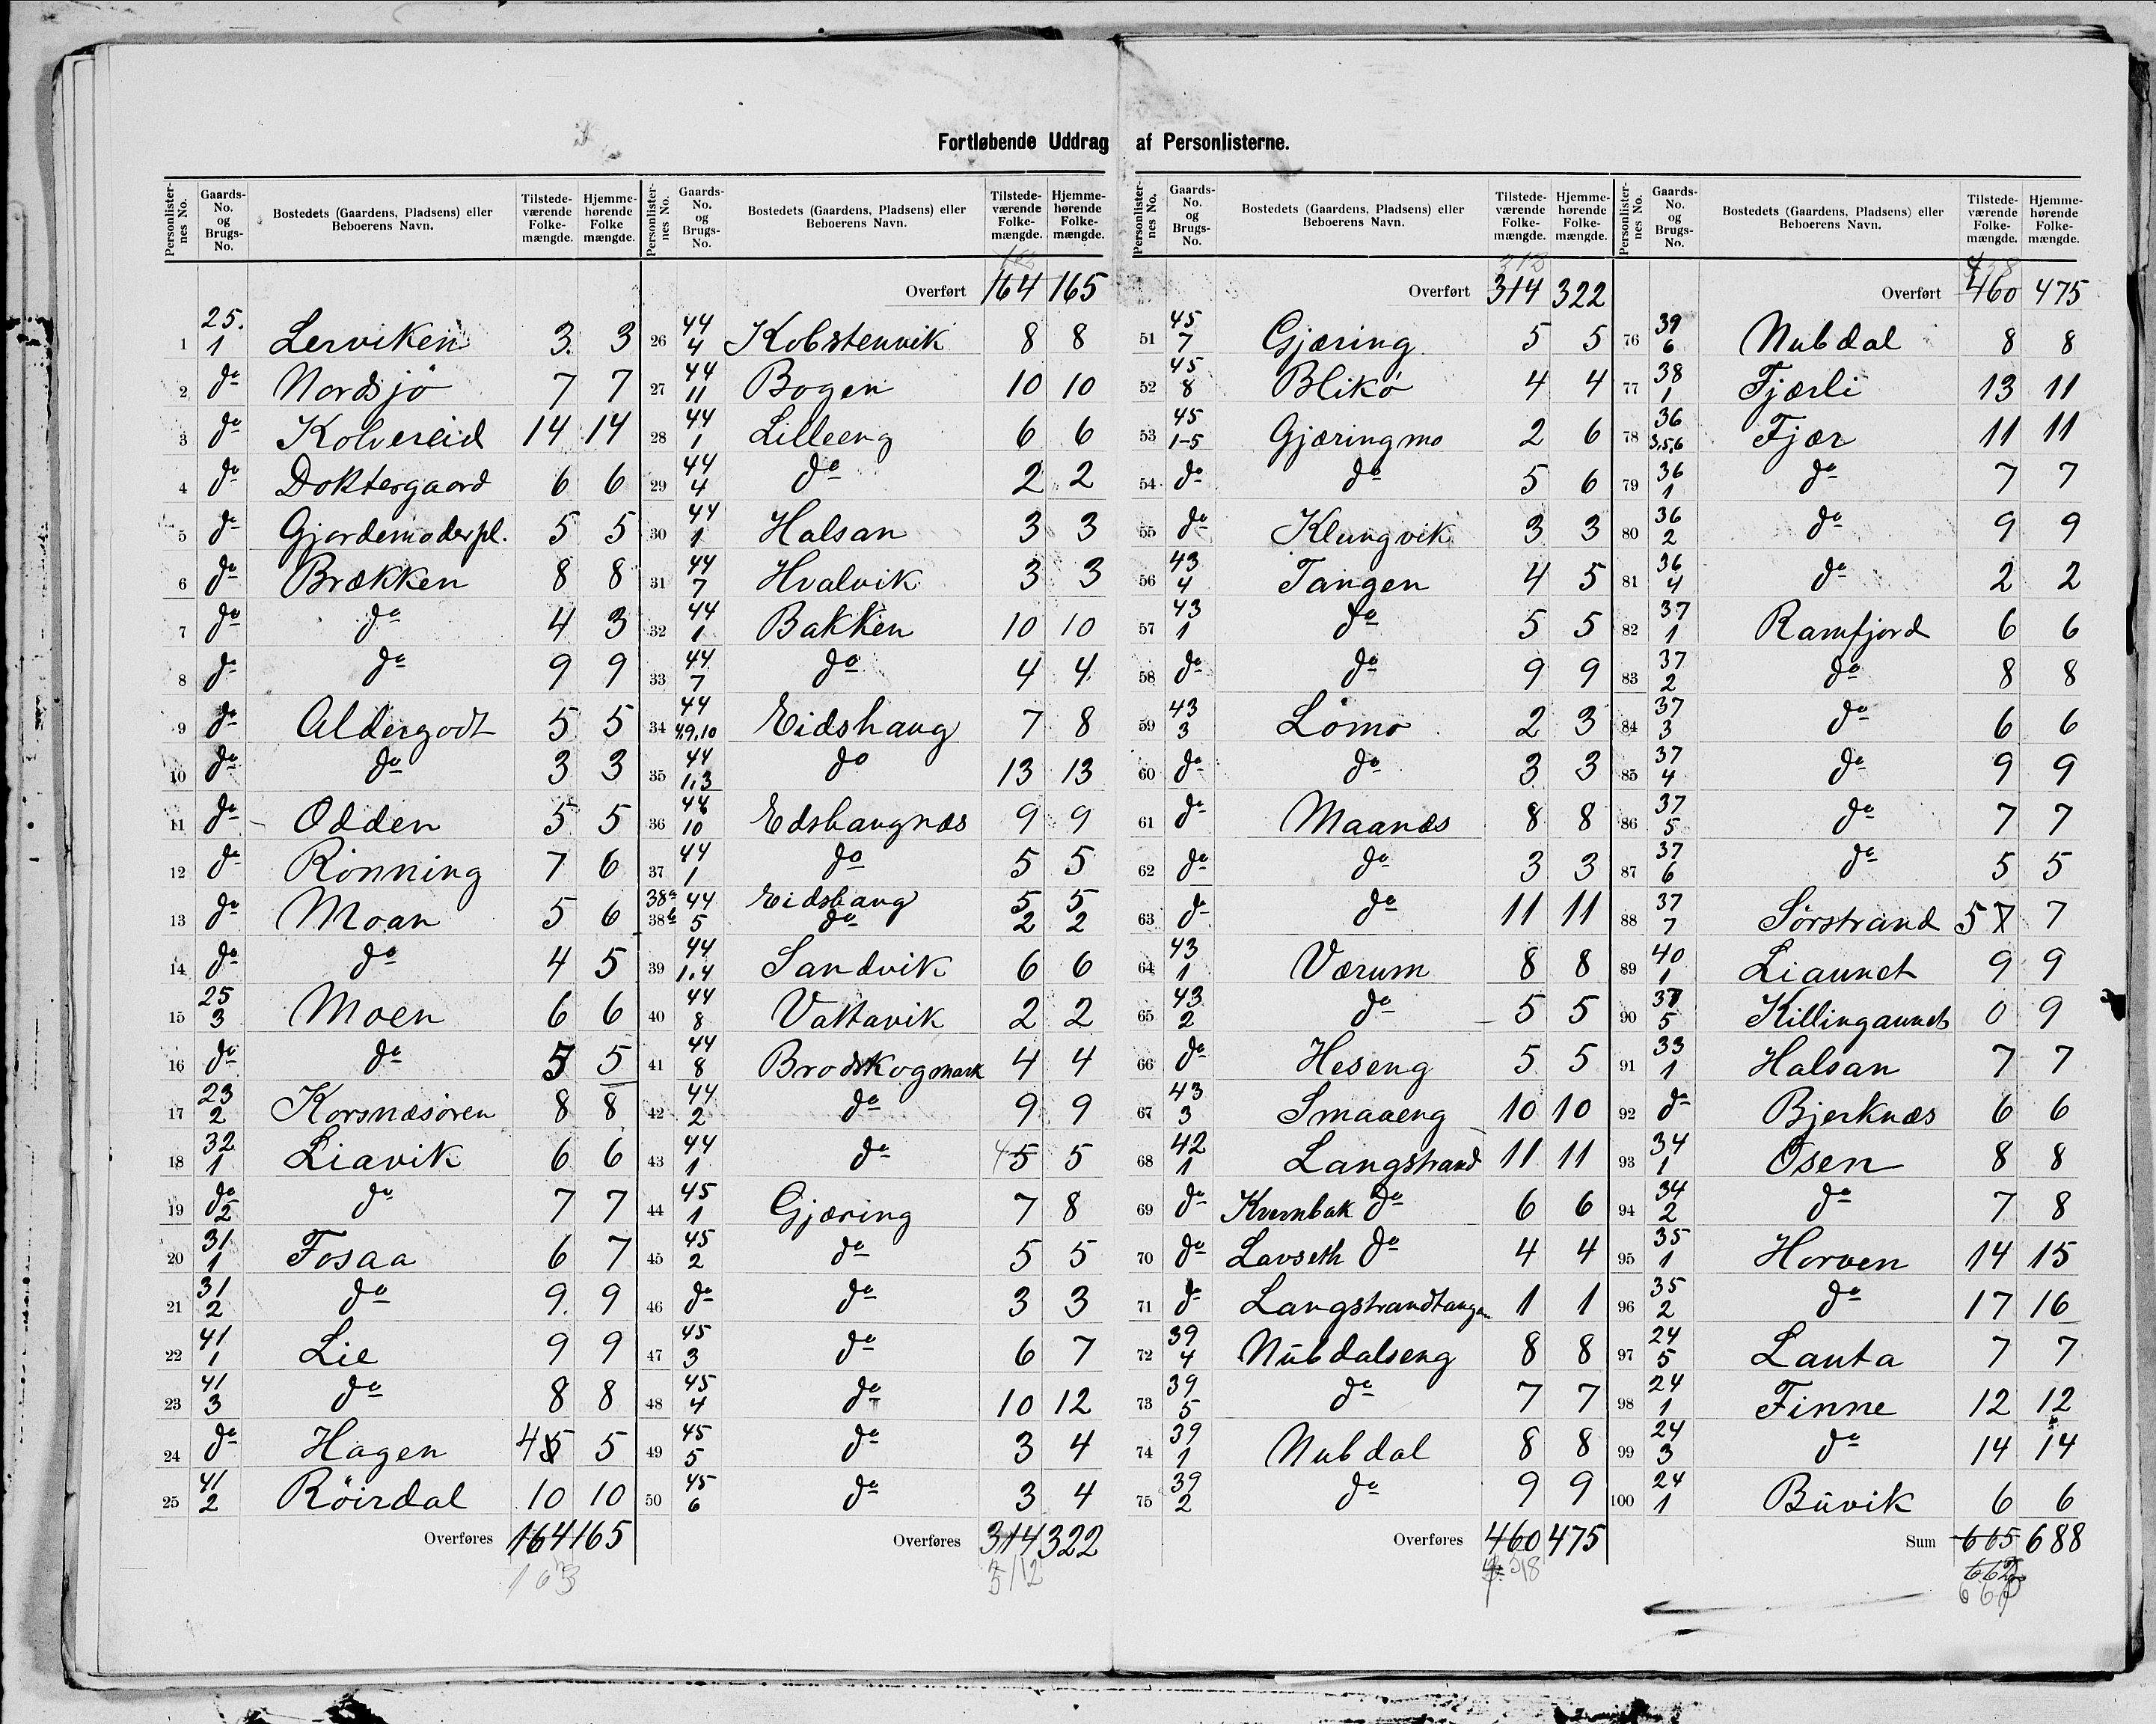 Fortløbende Uddrag af Personlisterne.
Personlisternes No. Gaards-No. og Brugs-No. Bostedets (Gaardens, Pladsens) eller Beboerens Navn. Tilstedeværende Folkemængde. Hjemmehørende Folke mængde.
1 25. 1 Lerviken 3 3
2 do Nordsjö 7 7
3 do Kolvereid 14 14
4 do Doktergaard 6 6
5 do Gjordemoderpl. 5 5
6 do Brækken 8 8
7 do do 4 3
8 do do 9 9
9 do Aldergodt 5 5
10 do do 3 3
11 do Odden 5 5
12 do Rönning 7 6
13 do Moan 5 6
14 do do 4 5
15 25 3 Moen 6 6
16 do do 5 5
17 23 2 Korsnæsören 8 8
18 32 1 Liavik 6 6
19 do 2 do 7 7
20 31 1 Fosaa 6 7
21 31 2 do 9 9
22 41 1 Lie 9 9
23 41 3 do 8 8
24 do Hagen 4 5 5
25 41 2 Röirdal 10 10
Overføres 164 165
163
Personlisternes No. Gaards-No. og Brugs-No. Bostedets (Gaardens, Pladsens) eller Beboerens Navn. Tilstedeværende Folkemængde. Hjemmehørende Folkemængde.
Overført 164 165
26 44 4 Kobstenvik 8 8
27 44 11 Bogen 10 10
28 44 1 Lilleeng 6 6
29 44 4 do 2 2
30 44 1 Halsan 3 3
31 44 7 Hvalvik 3 3
32 44 1 Bakken 10 10
33 44 7 do 4 4
34 44 4,9,10 Eidshaug 7 8
35 44 1,3 do 13 13
36 44 10 Edshaugnæs 9 9
37 44 1 do 5 5
38a 44 Eidshaug 5 5
38b 5 do 2 2
39 44 1,4 Sandvik 6 6
40 44 8 Vattavik 2 2
41 44 8 Brodskogmark 4 4
42 44 2 do 9 9
43 44 1 do 4 5 5
44 45 1 Gjæring 7 8
45 45 2 do 5 5
46 do do 3 3
47 45 3 do 6 7
48 45 4 do 10 12
49 45 5 do 3 4
50 45 6 do 3 4
Overføres 314 322
312
Personlisternes No. Gaards-No. og Brugs-No. Bostedets (Gaardens, Pladsens) eller Beboerens Navn. Tilstedeværende Folkemængde. Hjemmehørende Folkemængde.
312
Overført 314 322
51 45 7 Gjæring 5 5
52 45 8 Blikö 4 4
53 45 1-5 Gjæringmo 2 6
54 do do 5 6
55 do Klungvik 3 3
56 43 4 Tangen 4 5
57 43 1 do 5 5
58 do do 9 9
59 43 3 Lömo 2 3
60 do do 3 3
61 do Maanæs 8 8
62 do do 3 3
63 do do 11 11
64 43 1 Værum 8 8
65 43 2 do 5 5
66 do Heseng 5 5
67 43 3 Smaaeng 10 10
68 42 1 Langstrand 11 11
69 do Kvernbak do 6 6
70 do Lavseth do 4 4
71 do Langstrandtangen 1 1
72 39 4 Nubdalseng 8 8
73 39 5 do 7 7
74 39 1 Nubdal 8 8
75 39 2 do 9 9
Overføres 460 475
Personlisternes No. Gaards-No. og Brugs-No. Bostedets (Gaardens, Pladsens) eller Beboerens Navn. Tilstedeværende Folkemængde. Hjemmehørende Folkemængde.
458
Overført 460 475
76 39 6 Nubdal 8 8
77 38 1 Fjærli 13 11
78 36 3,5,6 Fjær 11 11
79 36 1 do 7 7
80 36 2 do 9 9
81 36 4 do 2 2
82 37 1 Ramfjord 6 6
83 37 2 do 8 8
84 37 3 do 6 6
85 37 4 do 9 9
86 37 5 do 7 7
87 37 6 do 5 5
88 37 7 Sörstrand 5 7 7
89 40 1 Liaunet 9 9
90 37 5 Killingaunet 0 9
91 33 1 Halsan 7 7
92 do Bjerknæs 6 6
93 34 1 Osen 8 8
94 34 2 do 7 8
95 35 1 Horven 14 15
96 35 2 do 17 16
97 24 5 Lauta 7 7
98 24 1 Finne 12 12
99 24 3 do 14 14
100 24 1 Buvik 6 6
Sum 665 688